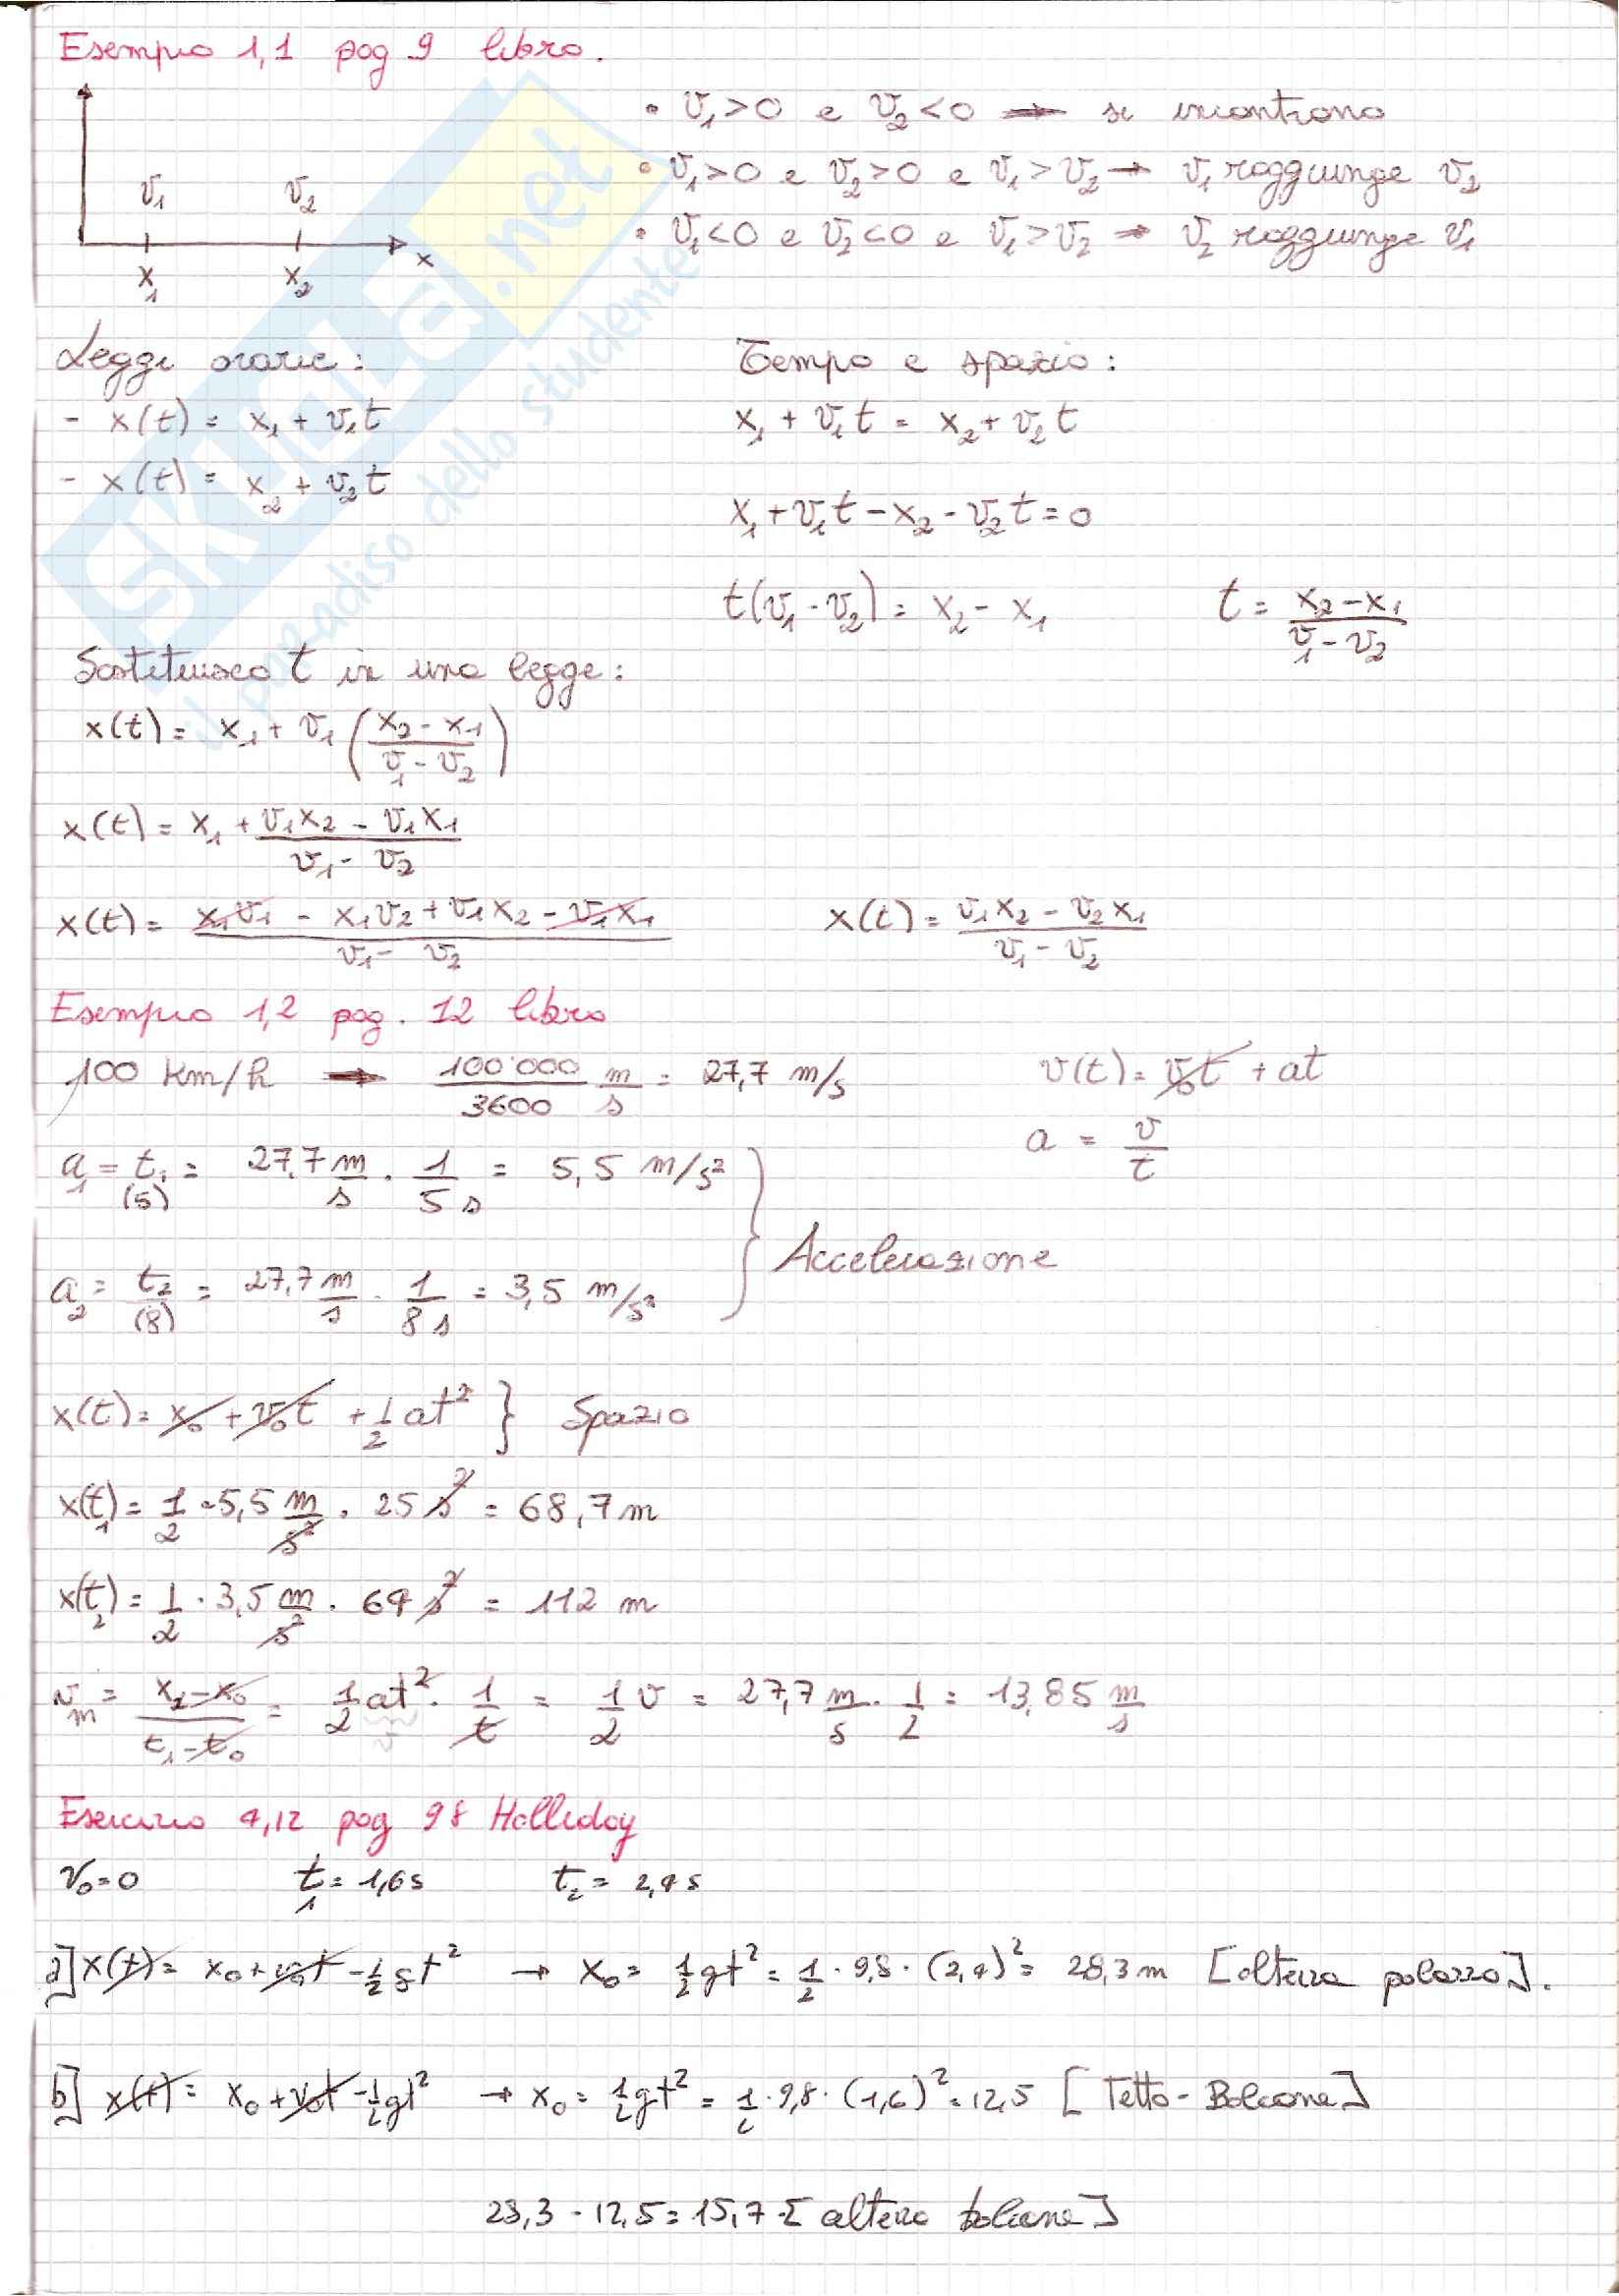 Esempio 1,1 pag 9 libro.
• v₁>0 e v₂<0 → si incontrano
• v₁>0 e v₂>0 e v₁>v₂ → v₁ raggiunge v₂
• v₁<0 e v₂<0 e v₁>v₂ → v₂ raggiunge v₁
v₁ v₂
x₁ x₂ x
Leggi orarie:
- x(t) = x₁ + v₁t
- x(t) = x₂ + v₂t
Tempo e spazio:
x₁ + v₁t = x₂ + v₂t
x₁ + v₁t - x₂ - v₂t = 0
t(v₁ - v₂) = x₂ - x₁ t = (x₂ - x₁)/(v₁ - v₂)
Sostituisco t in una legge:
x(t) = x₁ + v₁ ((x₂ - x₁)/(v₁ - v₂))
x(t) = x₁ + (v₁x₂ - v₁x₁)/(v₁ - v₂)
x(t) = (x₁v₁ - x₁v₂ + v₁x₂ - v₁x₁)/(v₁ - v₂) x(t) = (v₁x₂ - v₂x₁)/(v₁ - v₂)
Esempio 1,2 pag. 12 libro
100 Km/h → 100'000/3600 m/s = 27,7 m/s v(t) = v₀t + at
a = v/t
a₁ = t₁ (5) = 27,7 m/s · 1/5s = 5,5 m/s²
Accelerazione
a₂ = t₂ (8) = 27,7 m/s · 1/8s = 3,5 m/s²
x(t) = x₀ + v₀t + 1/2 at² } Spazio
x(t₁) = 1/2 · 5,5 m/s² · 25 s² = 68,7 m
x(t₂) = 1/2 · 3,5 m/s² · 64 s² = 112 m
vm = (x₁ - x₀)/(t₁ - t₀) = 1/2 at² · 1/t = 1/2 v = 27,7 m/s · 1/2 = 13,85 m/s
Esercizio 4,12 pag 98 Halliday
v₀=0 t₁ = 1,6s t₂ = 2,4s
a] x(t) = x₀ + v₀t - 1/2 gt² → x₀ = 1/2 gt² = 1/2 · 9,8 · (2,4)² = 28,3 m [altezza palazzo].
b] x(t) = x₀ + v₀t - 1/2 gt² → x₀ = 1/2 gt² = 1/2 · 9,8 · (1,6)² = 12,5 [Tetto - Balcone]
28,3 - 12,5 = 15,7 [altezza balcone]
SKUOLA.net
il pare-adiso dello studente